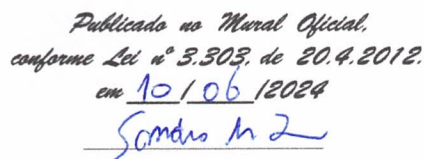 Publicado no Mural Oficial,
conforme Lei nº 3.303, de 20.4.2012.
em 10 / 06 /2024